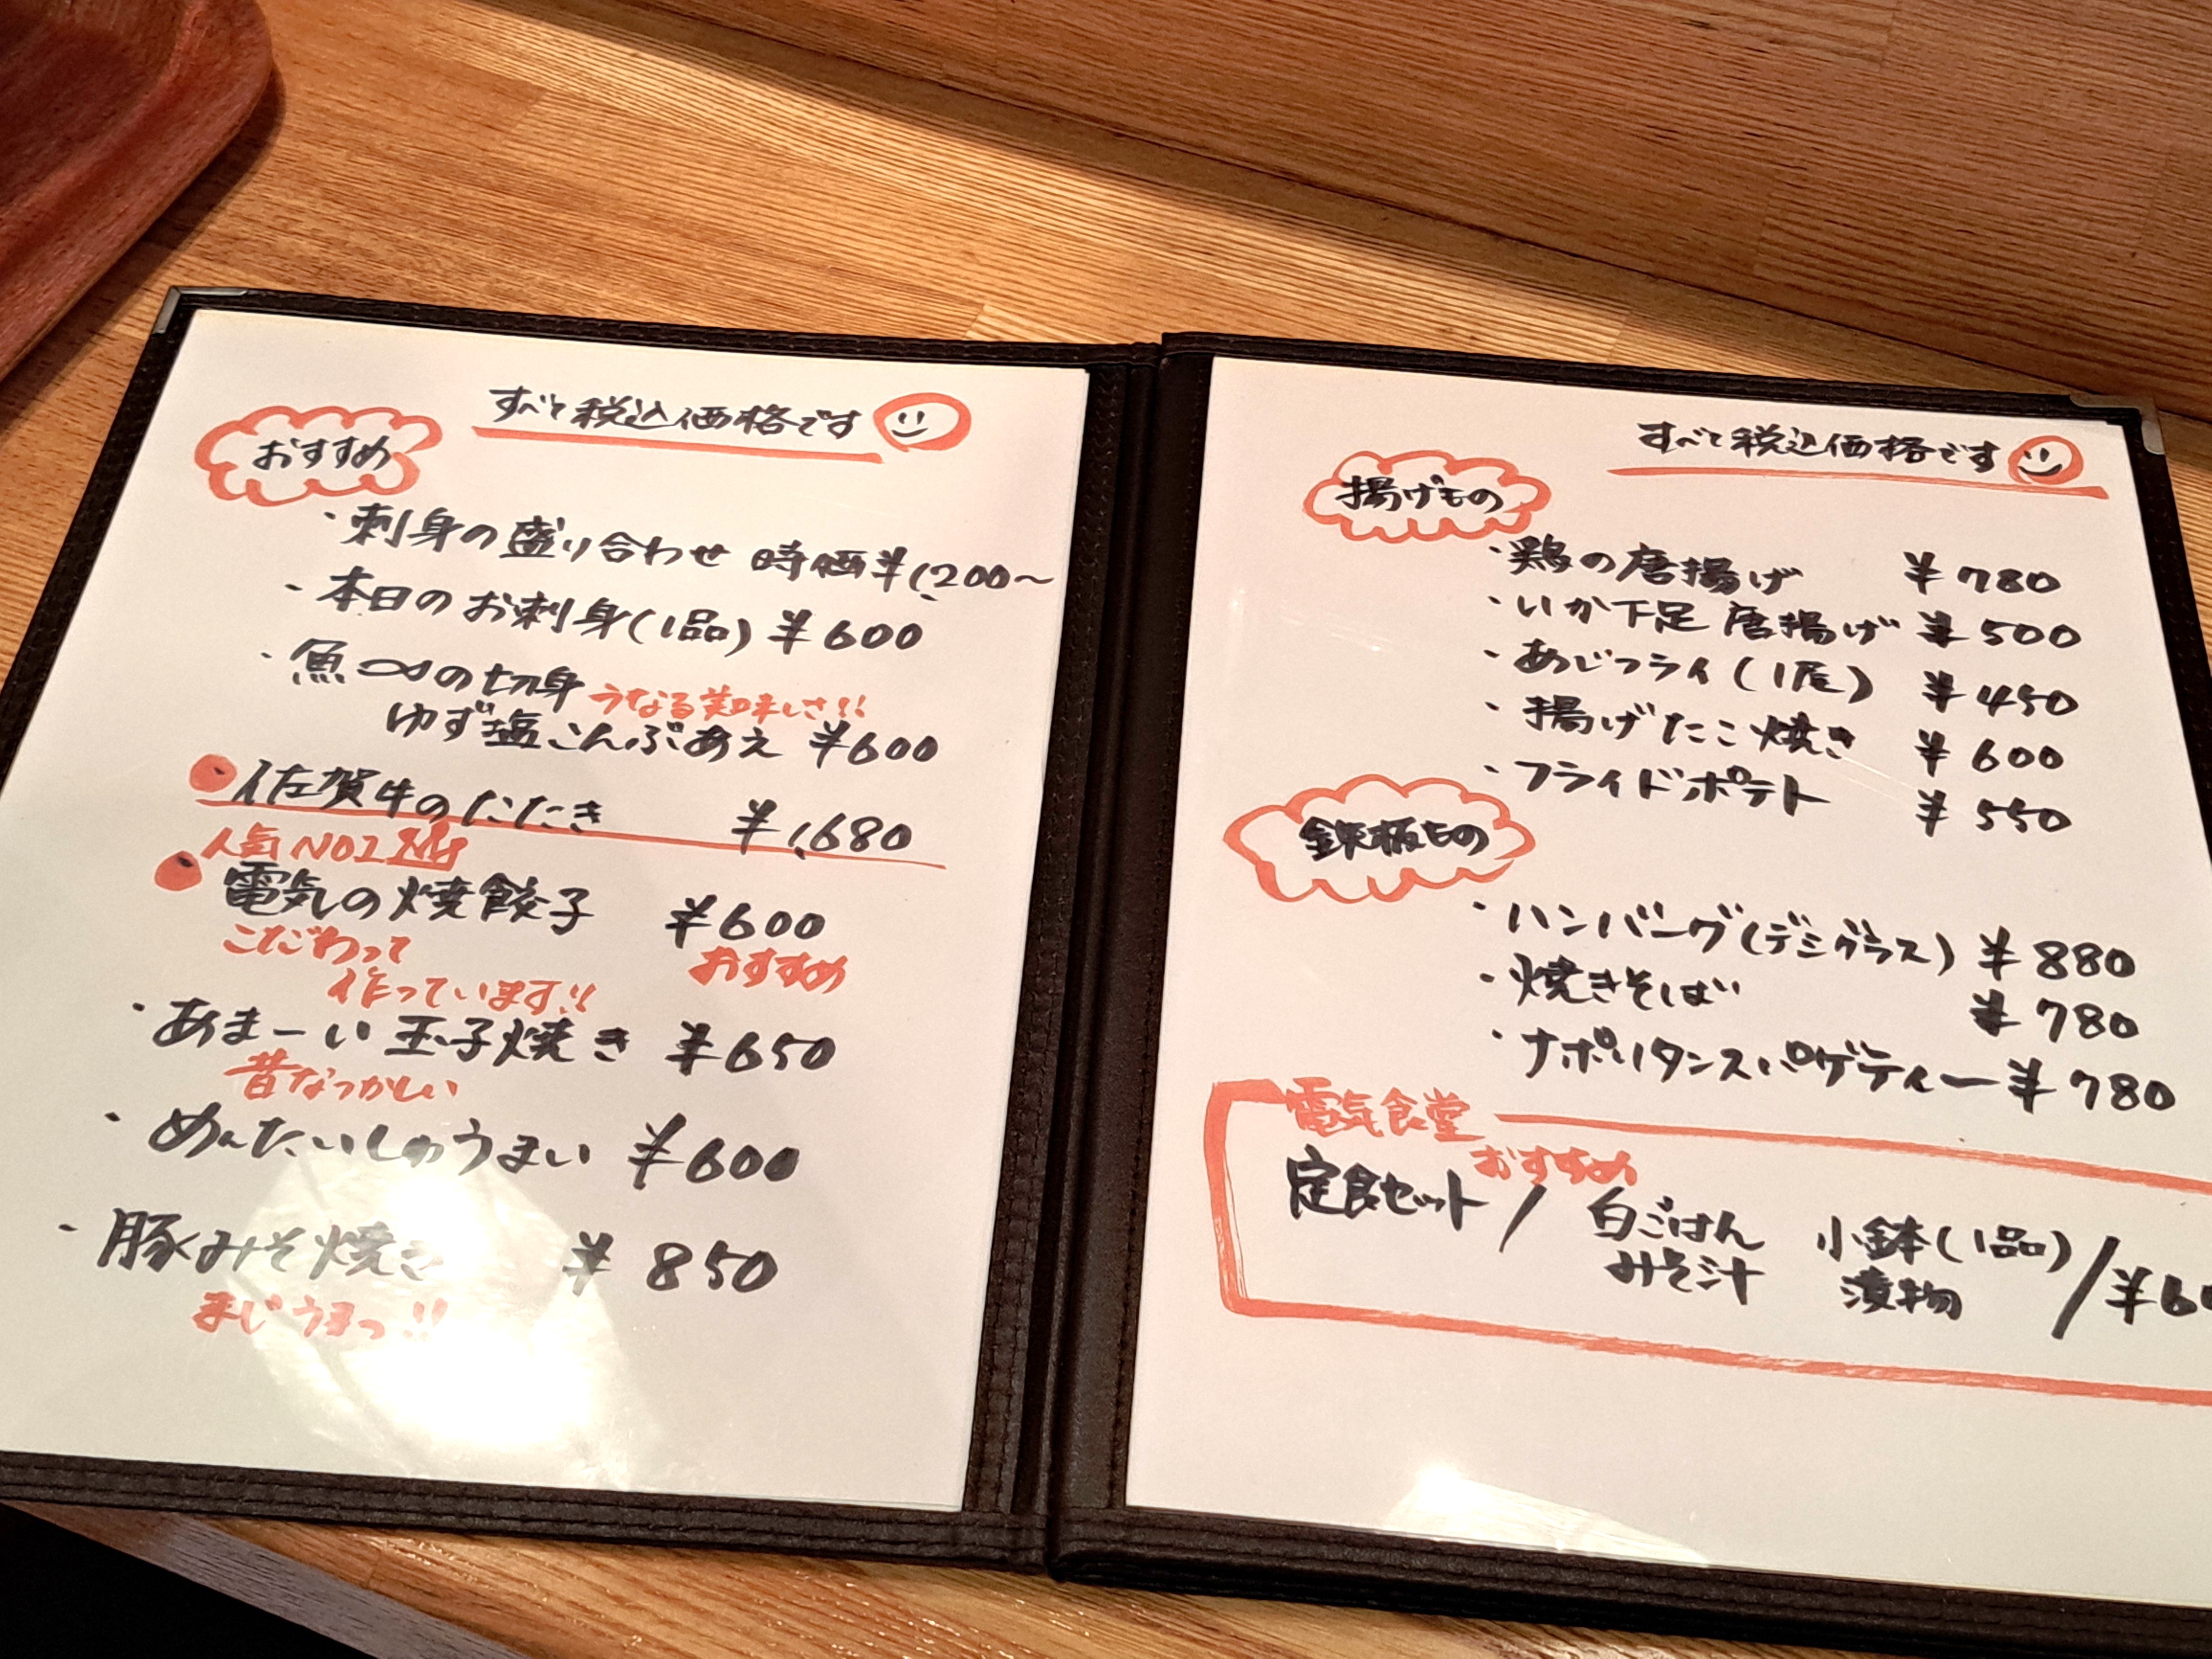 すべて税込価格です
おすすめ
・刺身の盛り合わせ 時価 ¥1,200〜
・本日のお刺身(1品) ¥600
・魚の切身 うなる美味しさ!!
ゆず塩こんぶあえ ¥600
・佐賀牛のたたき ¥1,680
人気NO1
・電気の焼餃子 ¥600
こだわって おすすめ
作っています!!
・あまーい玉子焼き ¥650
昔なつかしい
・めんたいしゅうまい ¥600
・豚みそ焼き ¥850
まじうまっ!!
すべて税込価格です
揚げもの
・鶏の唐揚げ ¥780
・いか下足唐揚げ ¥500
・あじフライ(1尾) ¥450
・揚げたこ焼き ¥600
・フライドポテト ¥550
鉄板もの
・ハンバーグ(デミグラス) ¥880
・焼きそば ¥780
・ナポリタンスパゲティー ¥780
電気食堂
おすすめ
定食セット/白ごはん 小鉢(1品)/
みそ汁 漬物